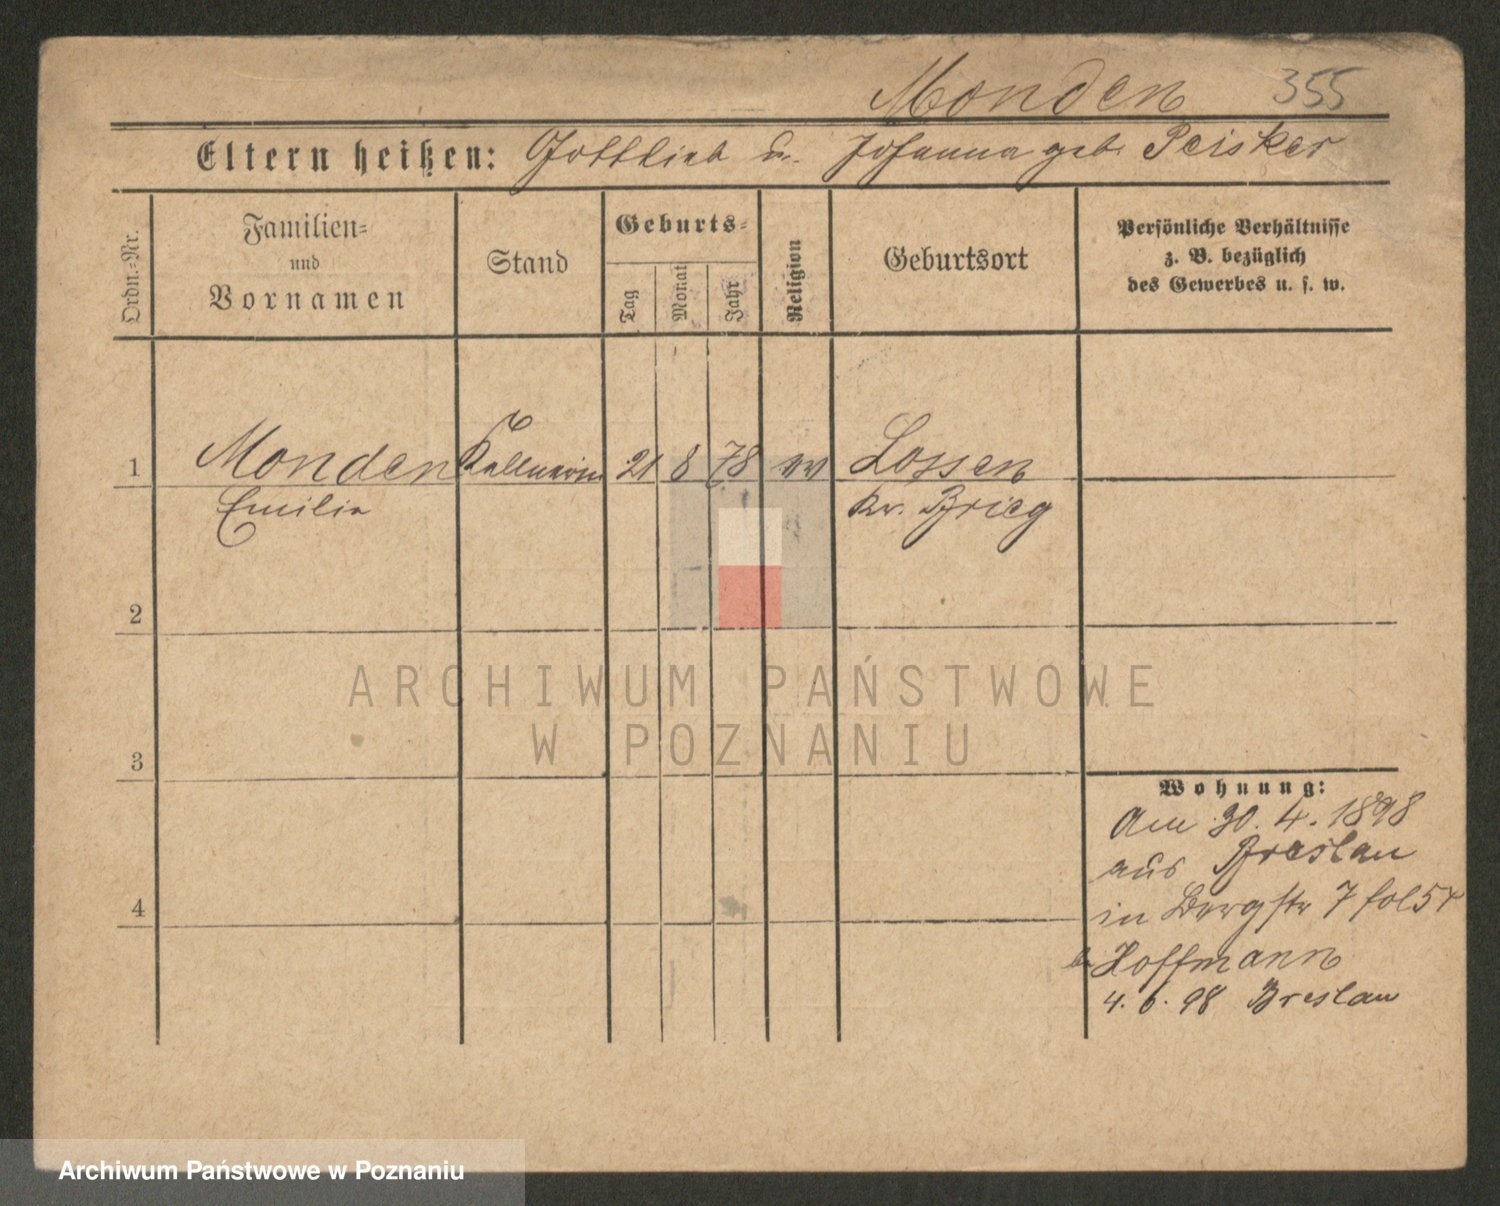 Monden 355
Eltern heißen: Gottlieb u. Johanna geb. Peisker
Ordn.-Nr.
Familien-
und
Vornamen
Stand
Geburts-
Tag
Monat
Jahr
Religion
Geburtsort
Persönliche Verhältnisse
z. B. bezüglich
des Gewerbes u. s. w.
1 Monden Kellnerin 21 8 78 ev Lossen
Emilie Kr. Brieg
2
3
4
ARCHIWUM PAŃSTWOWE
W POZNANIU
Wohnung:
Am 30. 4. 1898
aus Breslau
in Bergstr 7 fol 57
b Hoffmann
4. 6. 98 Breslau
Archiwum Państwowe w Poznaniu